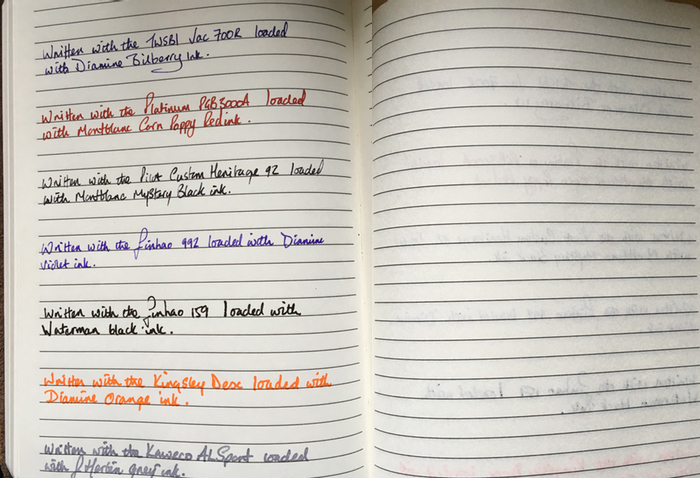 Written with the TWSBI Vac 700R loaded
with Diamine Bilberry ink.
Written with the Platinum PGB3000A loaded
with Montblanc Corn Poppy Red ink.
Written with the Pilot Custom Heritage 92 loaded
with Montblanc Mystery Black ink.
Written with the Jinhao 992 loaded with Diamine
Violet ink.
Written with the Jinhao 159 loaded with
Waterman black ink.
Written with the Kingsley Desc loaded with
Diamine Orange ink.
Written with the Kaweco AL Sport loaded
with J Herbin grey ink.